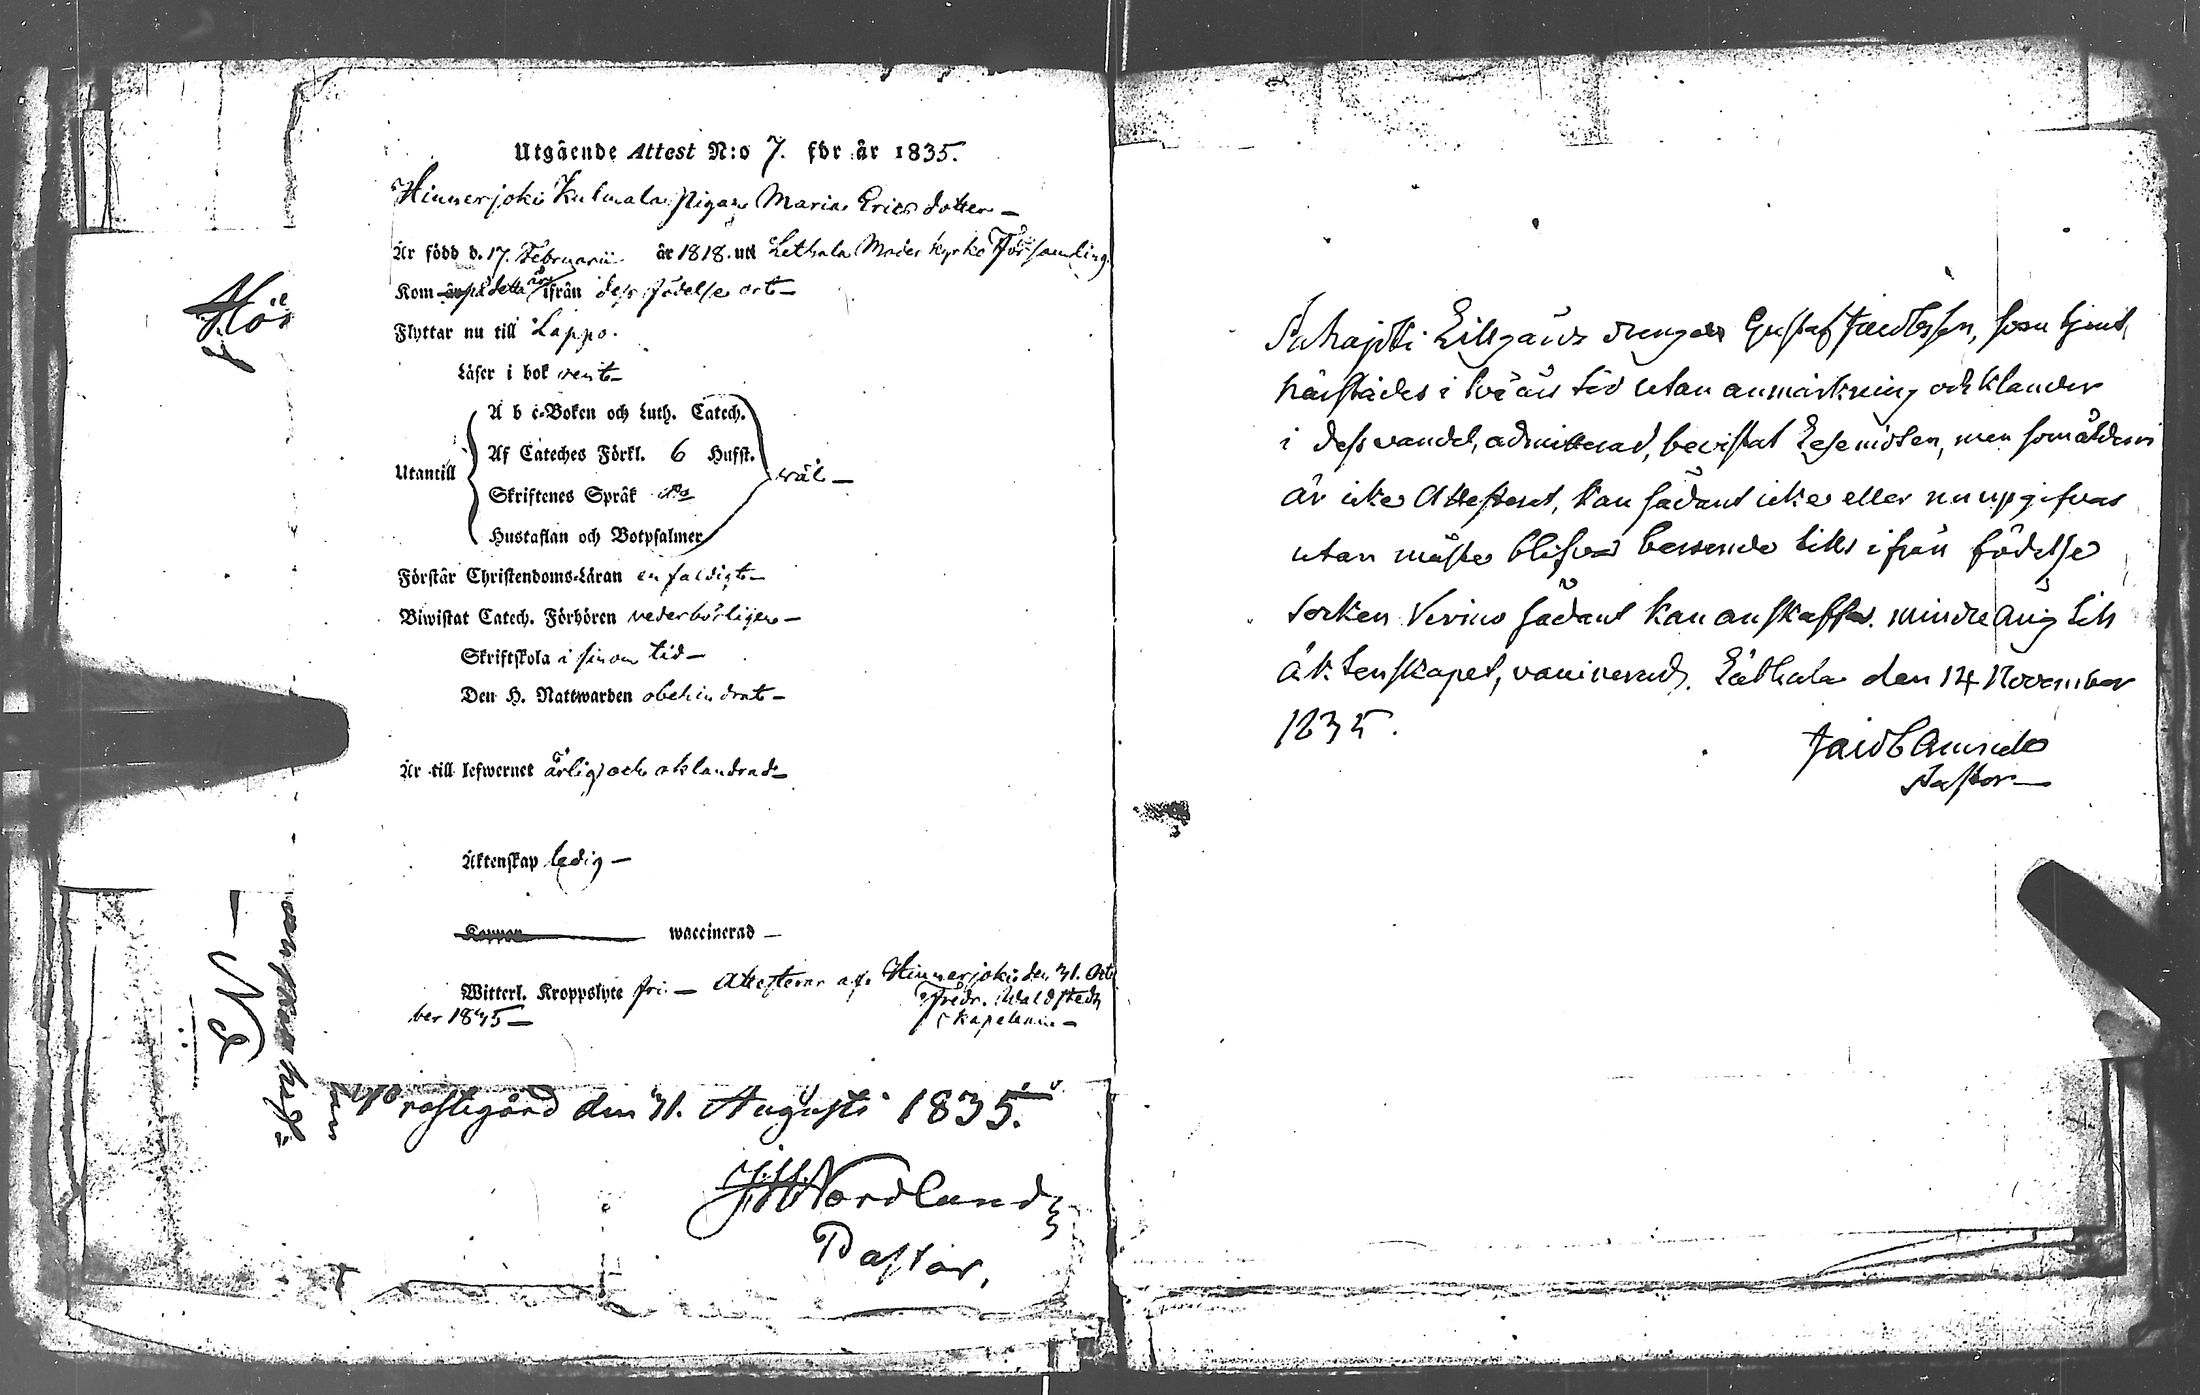 Utgående Attest N:o 7. för år 1835.
Hinnerjoki Kulmala pigan Maria Ericsdotter –
Är född d. 17. Februarii år 1818. uti Lethala Moder kyrko Församling.
Kom år på detta år ifrån dess födelse ort –
Flyttar nu till Lappo.
Läser i bok rent –
A b c-Boken och Luth. Catech.
Af Cateches Förkl. 6 Hufst.
Utantill wäl –
Skriftenes Språk d:o
Hustaflan och Botpsalmer
Förstår Christendoms-Läran enfaldigt –
Biwistat Catech. Förhören vederbörligen –
Skriftskola i sinom tid –
Den H. Nattwarden obehindrat –
Är till lefwernet ärlig och oklandrad –
Äktenskap ledig –
Koppor waccinerad –
Witterl. Kroppslyte fri. – Attesterar af Hinnerjoki den 31. Octo
ber 1835 – Fredr. Waldstedt
Kapellan –
Prostegård den 31. Augusti 1835.
Nordlund
Pastor.
drengen Gustaf Jacobsson, som tjent
härstädes i två års tid utan anmärkning och klander
i dess vandel, admitterad, bevistat Läsemöten, men som åldern
är icke Attesterat, kan sådant icke eller nu upgifvas
utan måste blifva beroende tills ifrån födelse
socken Virmo sådant kan anskaffas. mindreårig till
äktenskapet, vaccinerad. Läthala den 14 November
1835.
Jacob
Pastor